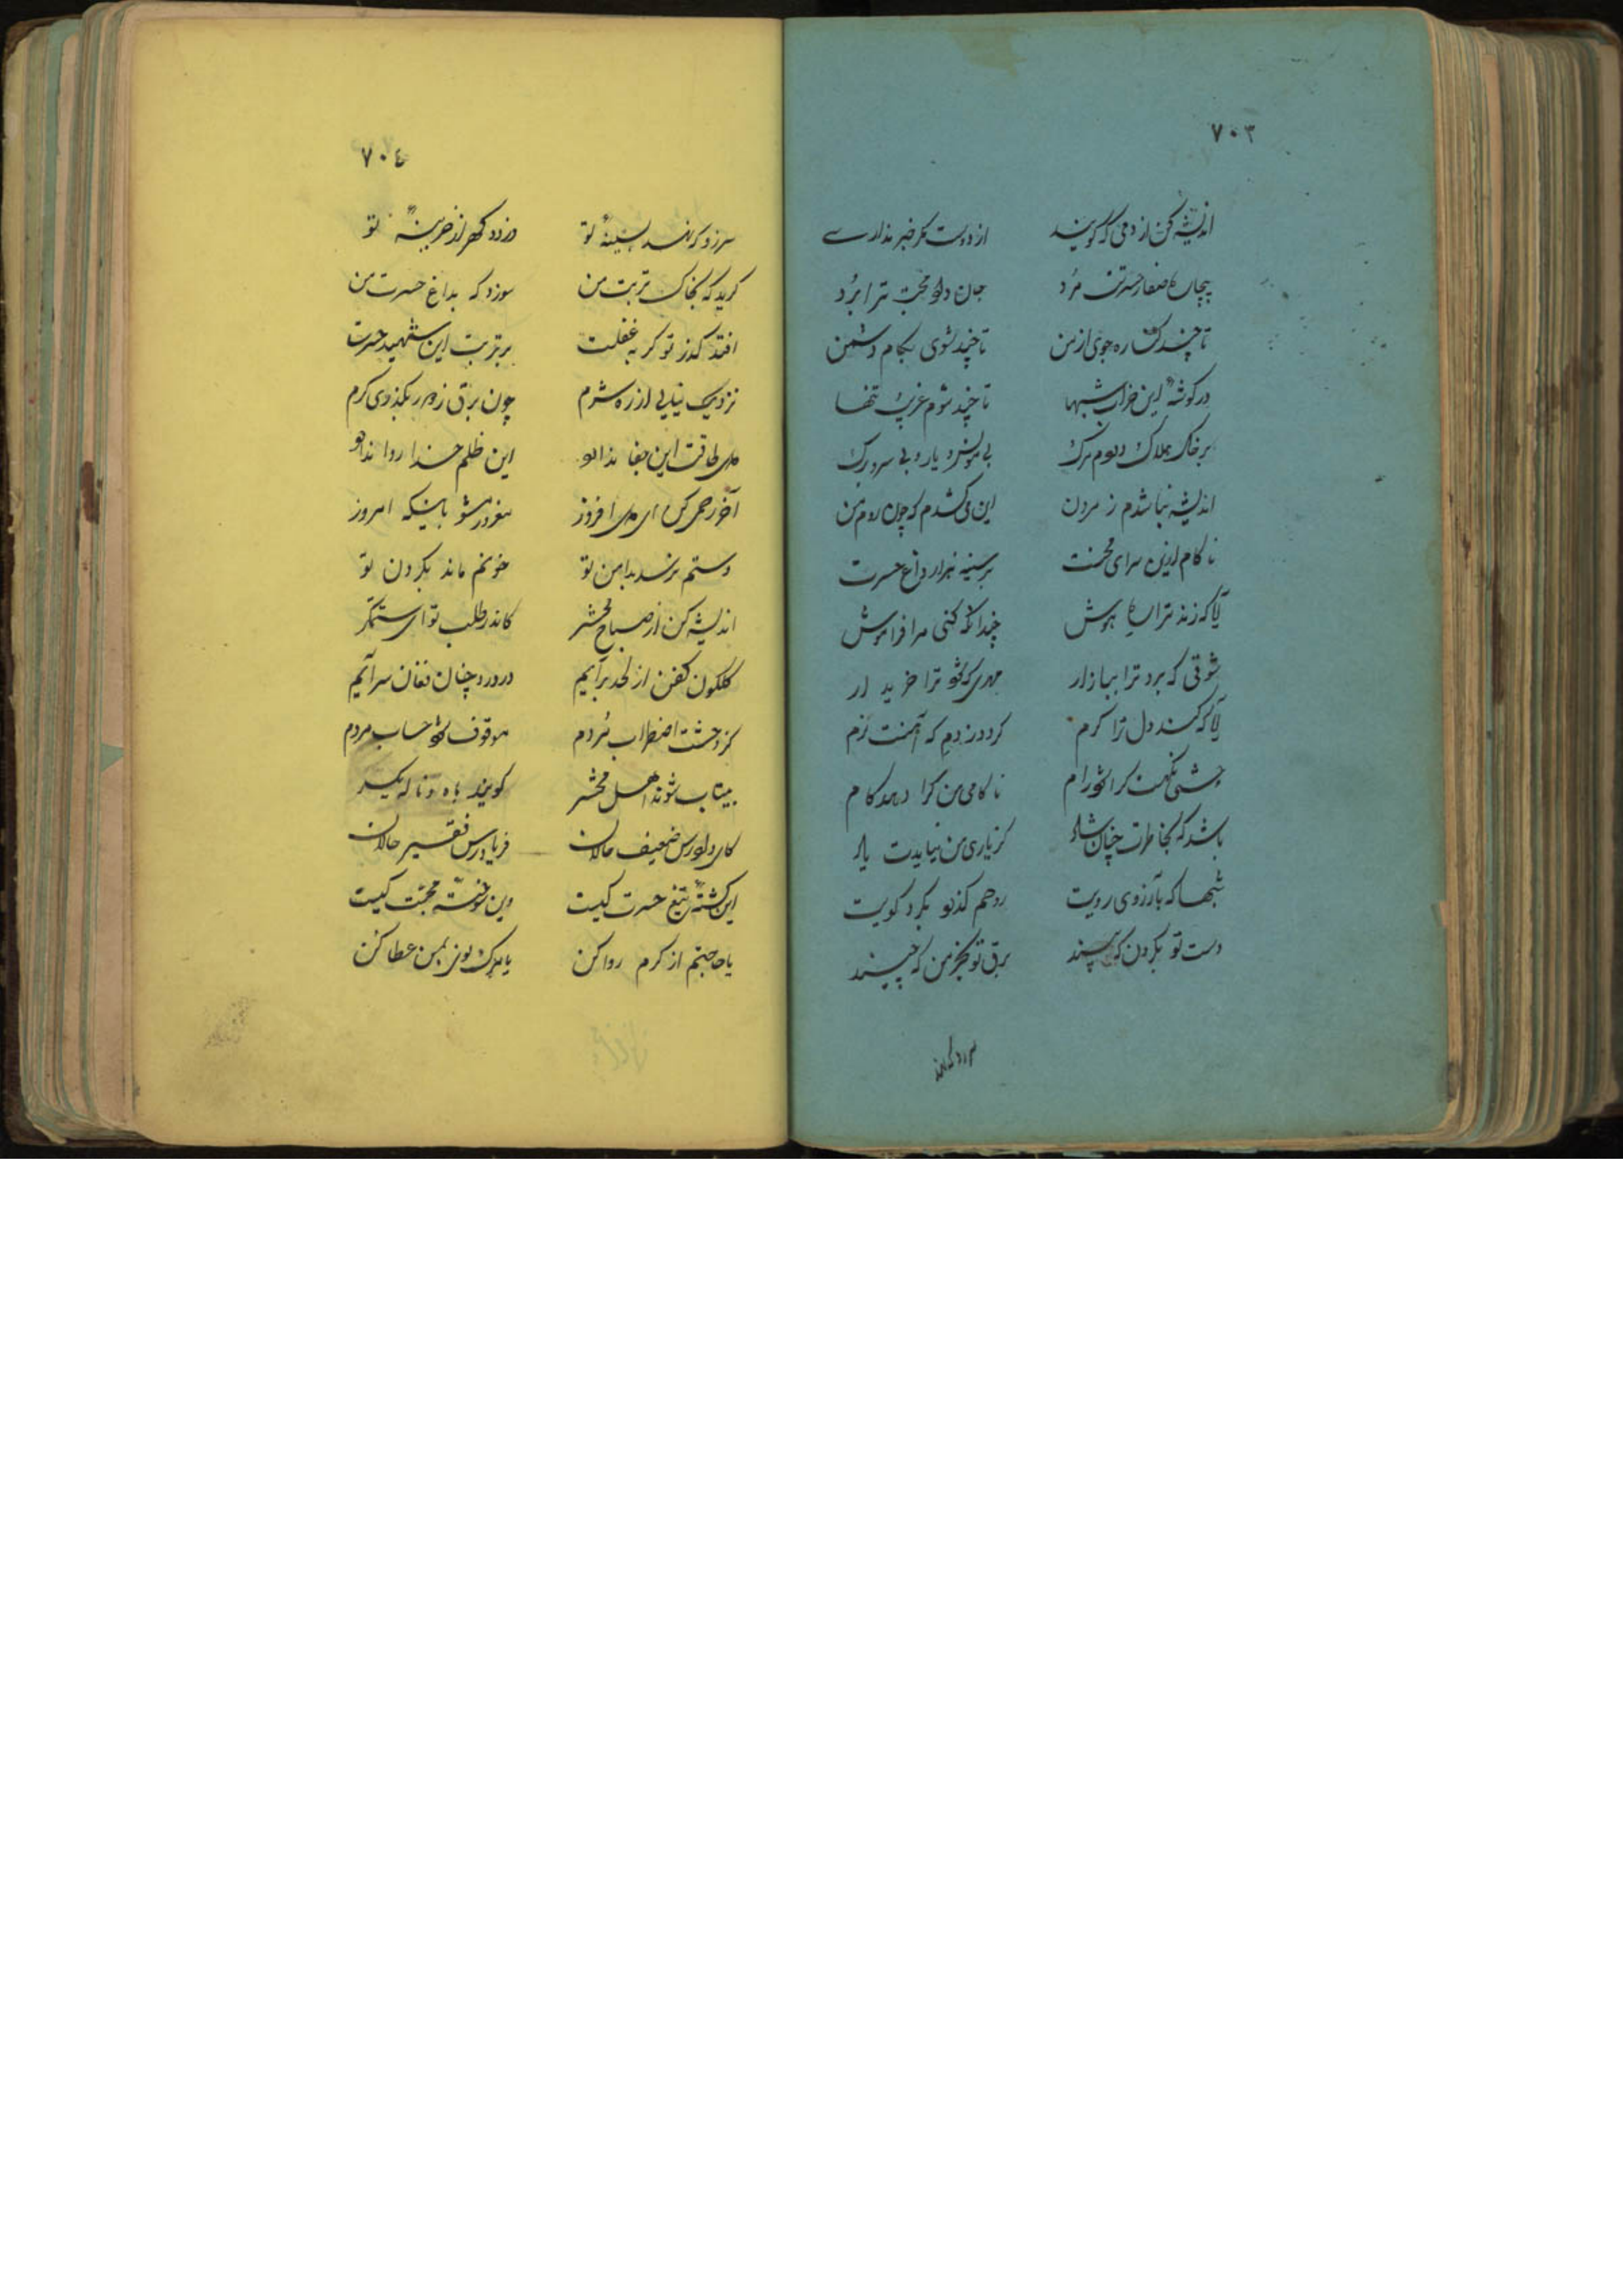 ۷۰۳
اندیشه کن از دمی که گویند از دوست مگر خبر نداری
پیچان صفا حسرتت مرد جان داد و محبت ترا برد
تا چند کنی ره جوی از من تا چند شوی بکام دشمن
در گوشهٔ این خراب شبها تا چند شوم غریب تنها
بر خاک هلاک دهم مرگ بی مونس و یار و بی سر و برگ
اندیشه نباشدم ز مردن این می‌کشدم که چون روم من
ناکام ازین سرای محنت بر سینه هزار داغ حسرت
آیا که زند ترا هوش چندانکه کنی مرا فراموش
شوقی که برد ترا ببازار مهری که شود ترا خریدار
آیا که کند دل ترا گرم کردد ز دم که آهنت نرم
چشمی نگهت کرا شود رام ناکامی من کرا دهد کام
باشد که بخاطرت چنان شاد کز یاری من نیایدت یاد
شبها که بآرزوی رویت روحم گذرد بگرد کویت
دست تو بگردن که بینند برق تو بخرمن که چینند
سرزد گرانمد
۷۰٤
سرزد گرانمد بسینهٔ تو دزدد گهر از خزینهٔ تو
گرید که بخاک تربت من سوزد که بداغ حسرت من
افتد گذر تو گر بغفلت بر تربت این شهید حسرت
نزدیک نیایی از ره شرم چون برق ز دور بگذری گرم
دل طاقت این جفا ندارد این ظلم خدا روا ندارد
آخر رحمی کن ای دل افروز مغرور مشو باینکه امروز
دستم نرسد بدامن تو خونم ماند بگردن تو
اندیشه کن از صباح محشر کاندر طلب تو ای ستمگر
گلگون کفن از لحد برآیم در درد چنان فغان سرآیم
کز وحشت اضطراب مردم موقوف شود حساب مردم
بیتاب شوند اهل محشر گویند به آه و ناله یکسر
کای دادرس ضعیف حالان فریادرس فقیر حالان
این کشتهٔ تیغ حسرت کیست وین سوختهٔ محبت کیست
یا حاجتم از کرم روا کن یا مرگ بمن عطا کن